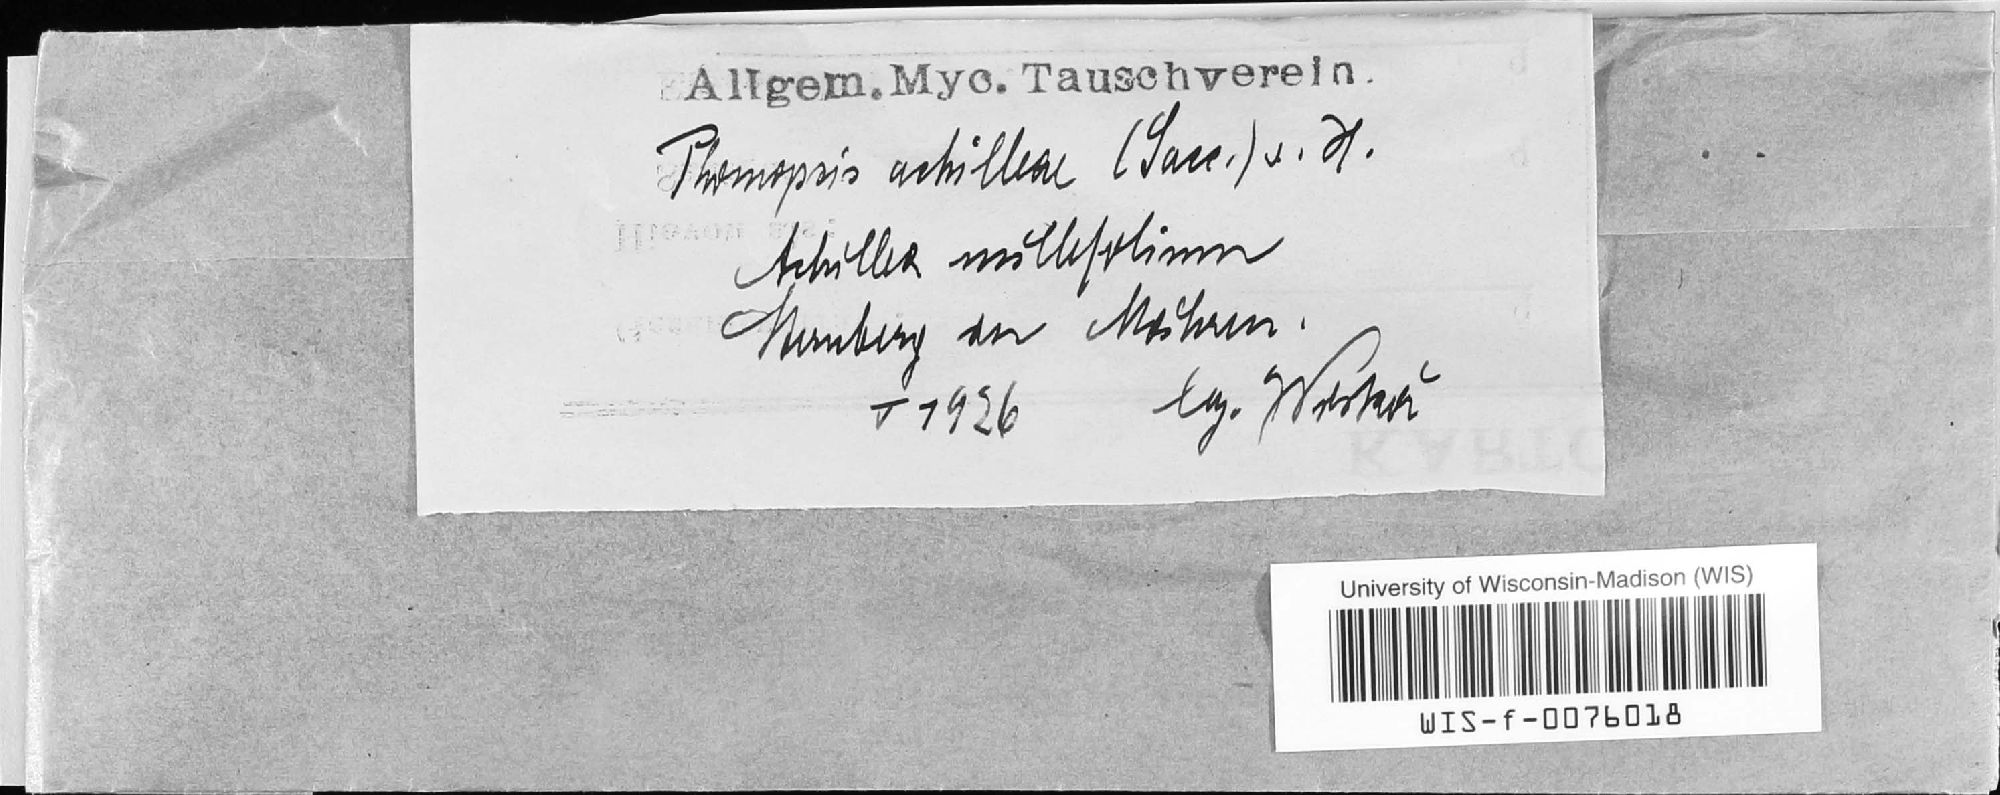 Allgem. Myc. Tauschverein.
Phomopsis achilleae (Sacc.) v. H.
Achillea millefolium
Sternberg in Mähren.
V 1926 leg. Piskoř
University of Wisconsin-Madison (WIS)
WIS-f-0076018